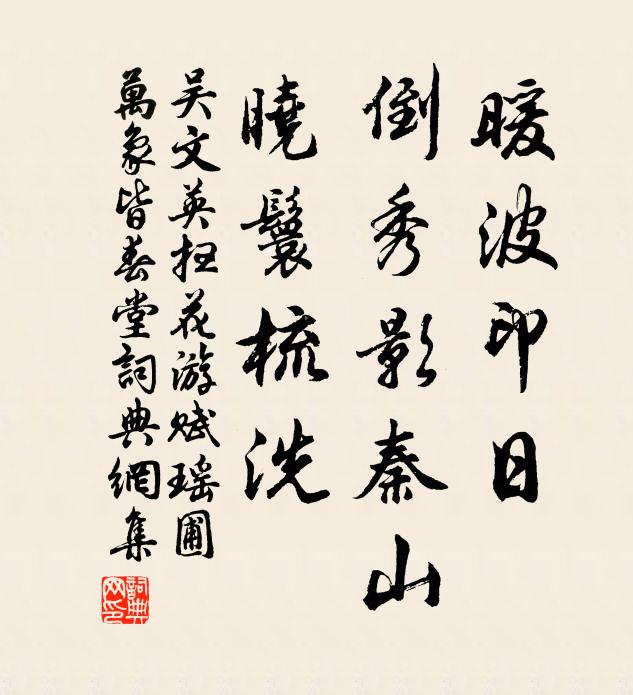 暖波印日
倒秀影秦山
曉鬟梳洗
吴文英扫花游賦瑶圃
萬象皆春堂詞典網集
詞典网印